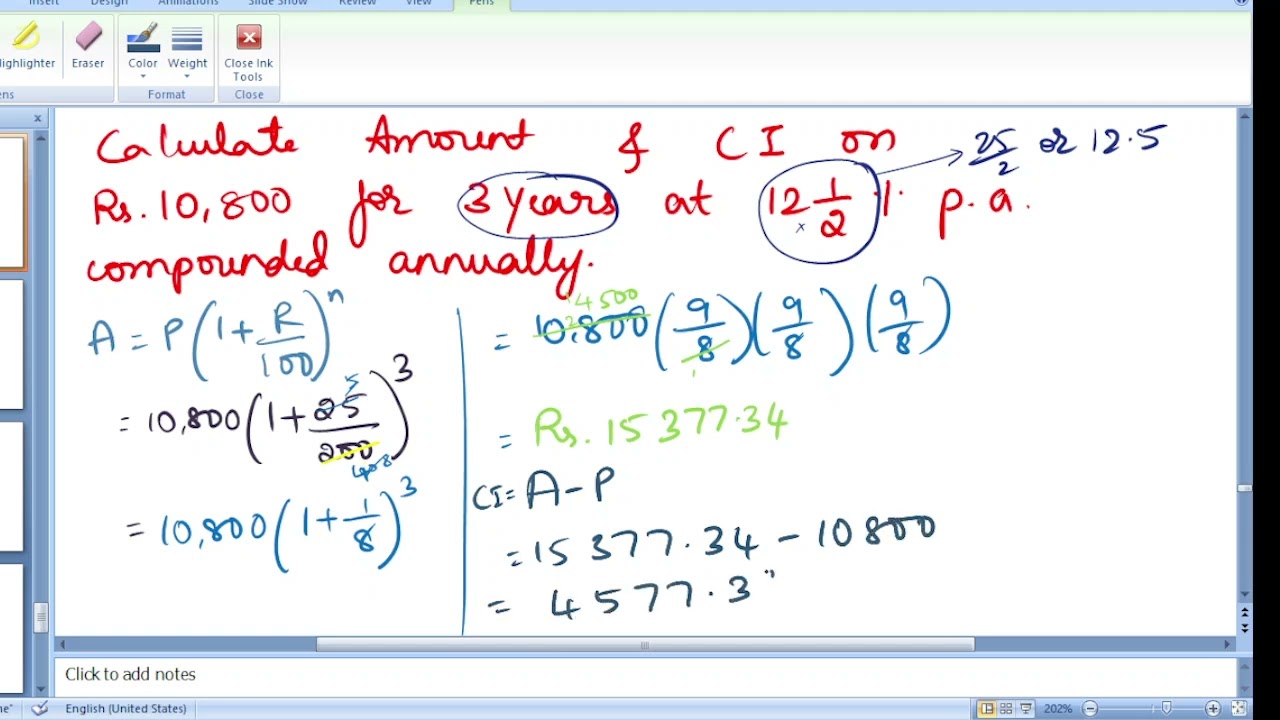 Insert Design Animations Slide Show Review View Pens
Highlighter Eraser Color Weight Close Ink Tools
Pens Format Close
Calculate Amount & CI on 25/2 or 12.5
Rs. 10,800 for 3 years at 12 1/2 % p.a.
compounded annually.
A = P(1+R/100)^n
= 10,800(1+25/200)^3
5
40 8
= 10,800(1+1/8)^3
= 10,800(9/8)(9/8)(9/8)
1
= Rs. 15377.34
CI = A - P
= 15377.34 - 10800
= 4577.3
Click to add notes
English (United States) 202%